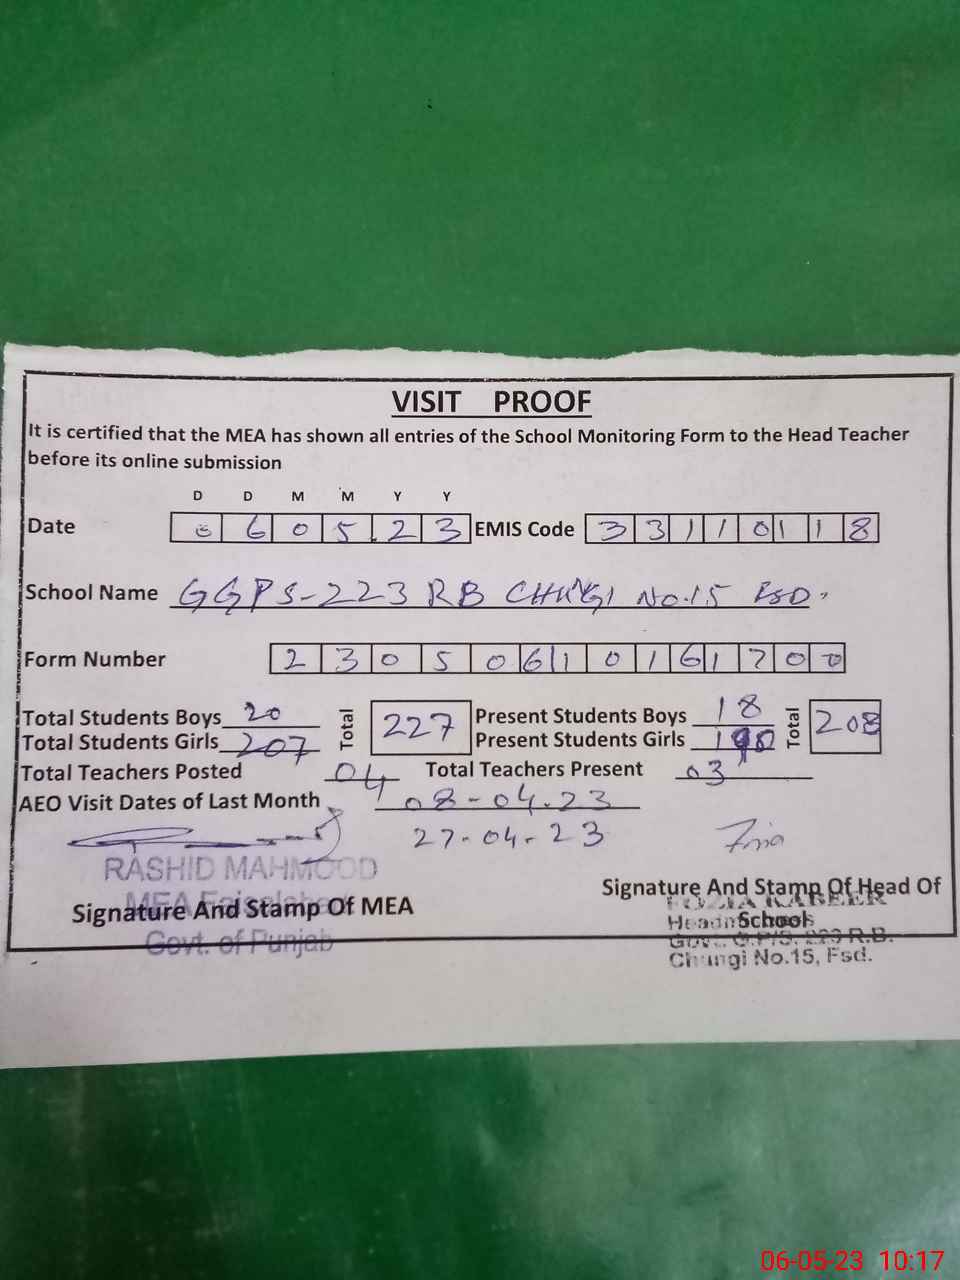 VISIT PROOF
It is certified that the MEA has shown all entries of the School Monitoring Form to the Head Teacher
before its online submission
D D M M Y Y
Date 0 6 0 5 2 3 EMIS Code 3 3 1 1 0 1 1 8
School Name GGPS-223 RB CHUNGI No.15 FSD.
Form Number 2 3 0 5 0 6 1 0 1 6 1 7 0 0
Total Students Boys 20 Total 227 Present Students Boys 18 Total 208
Total Students Girls 207 Present Students Girls 190
Total Teachers Posted 04 Total Teachers Present 03
AEO Visit Dates of Last Month 08-04.23
27-04-23
RASHID MAHMOOD
MEA Faisalabad
Signature And Stamp Of MEA
Govt. of Punjab
Signature And Stamp Of Head Of
School
FOZIA KABEER
Headmistress
Govt. G.P/S. 223 R.B.
Chungi No.15, Fsd.
06-05-23 10:17